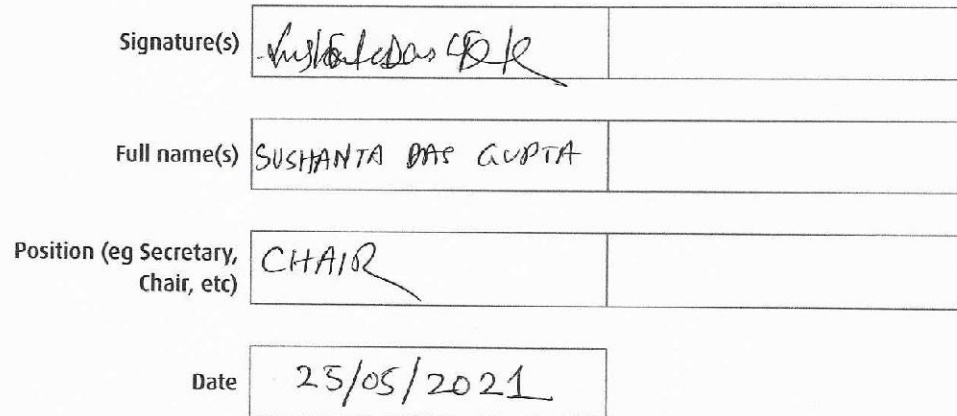 Signature(s)
Full name(s) SUSHANTA DAS GUPTA
Position (eg Secretary, CHAIR
Chair, etc)
Date 25/05/2021